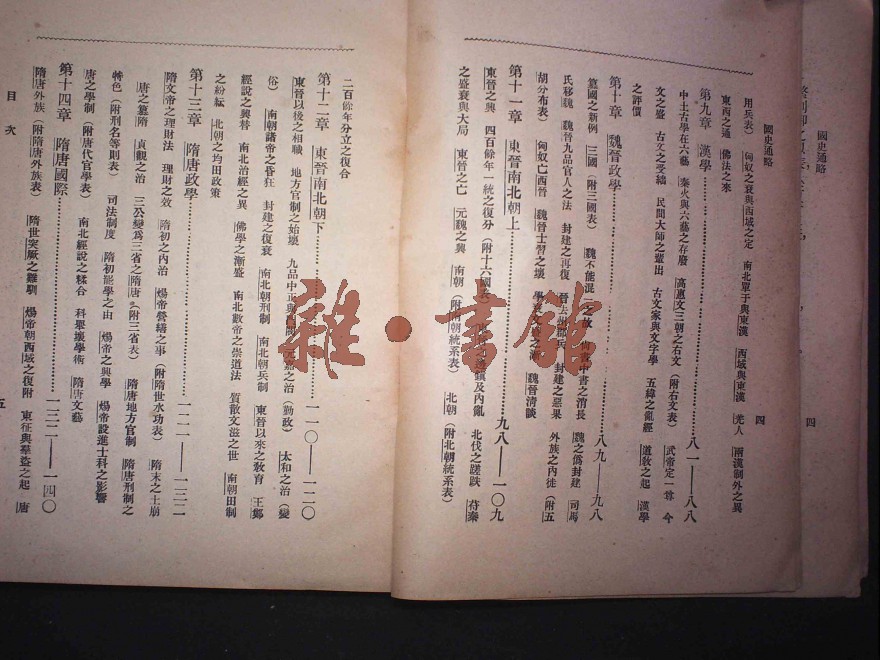 國史通略
四
國史通略
四
用兵表） 匈奴之衰與西域之定 南北單于與東漢 西域與東漢 羌人 兩漢制外之異
東西之通 佛法之來
第九章 漢學 八一——八八
中土古學在六藝 秦火與六藝之存廢 高惠文三朝之右文（附右文表） 武帝定一尊 今
文之盛 古文之受絀 民間大師之輩出 古文家與文字學 五緯之亂經 道敎之起 漢學
之評價
第十章 魏晉政學 八九——九八
篡國之新例 三國（附三國表） 魏不能混一之故 中書之消長 魏之僞封建 司馬
氏移魏 魏晉九品官人之法 封建之再復 晉去州郡兵 封建之惡果 外族之內徙（附五
胡分布表） 匈奴亡西晉 魏晉士習之壞 魏晉清談
第十一章 東晉南北朝上 九八——一〇九
東晉之興 四百餘年一統之復分（附十六國表） 及內亂 北伐之蹉跌 苻秦
之盛衰與大局 東晉之亡 元魏之興 南朝（附南朝統系表） 北朝（附北朝統系表）
二百餘年分立之復合
第十二章 東晉南北朝下 一一〇——一二〇
東晉以後之相職 地方官制之始壞 九品中正與 元嘉之治（勤政） 太和之治（變
俗） 南朝諸帝之昏狂 封建之復衰 南北朝刑制 南北朝兵制 東晉以來之敎育 王鄭
經說之興替 南北治經之異 佛學之漸盛 南北數帝之崇道法 質散文滋之世 南朝田制
之紛紜 北朝之均田政策
第十三章 隋唐政學 一二一——一三二
隋文帝之理財法 理財之效 隋初之內治 煬帝營繕之事（附隋世水功表） 隋末之土崩
唐之篡隋 貞觀之治 三公變爲三省之隋唐（附三省表） 隋唐地方官制 隋唐刑制之
特色（附刑名等則表） 司法制度 隋初罷學之由 煬帝之興學 煬帝設進士科之影響
唐之學制（附唐代官學表） 南北經說之糅合 科舉壞學術 隋唐文藝
第十四章 隋唐國際 一三二——一四〇
隋唐外族（附隋唐外族表） 隋世突厥之難馴 煬帝朝西域之復附 東征與羣盜之起 唐
目次
五
雜·書館